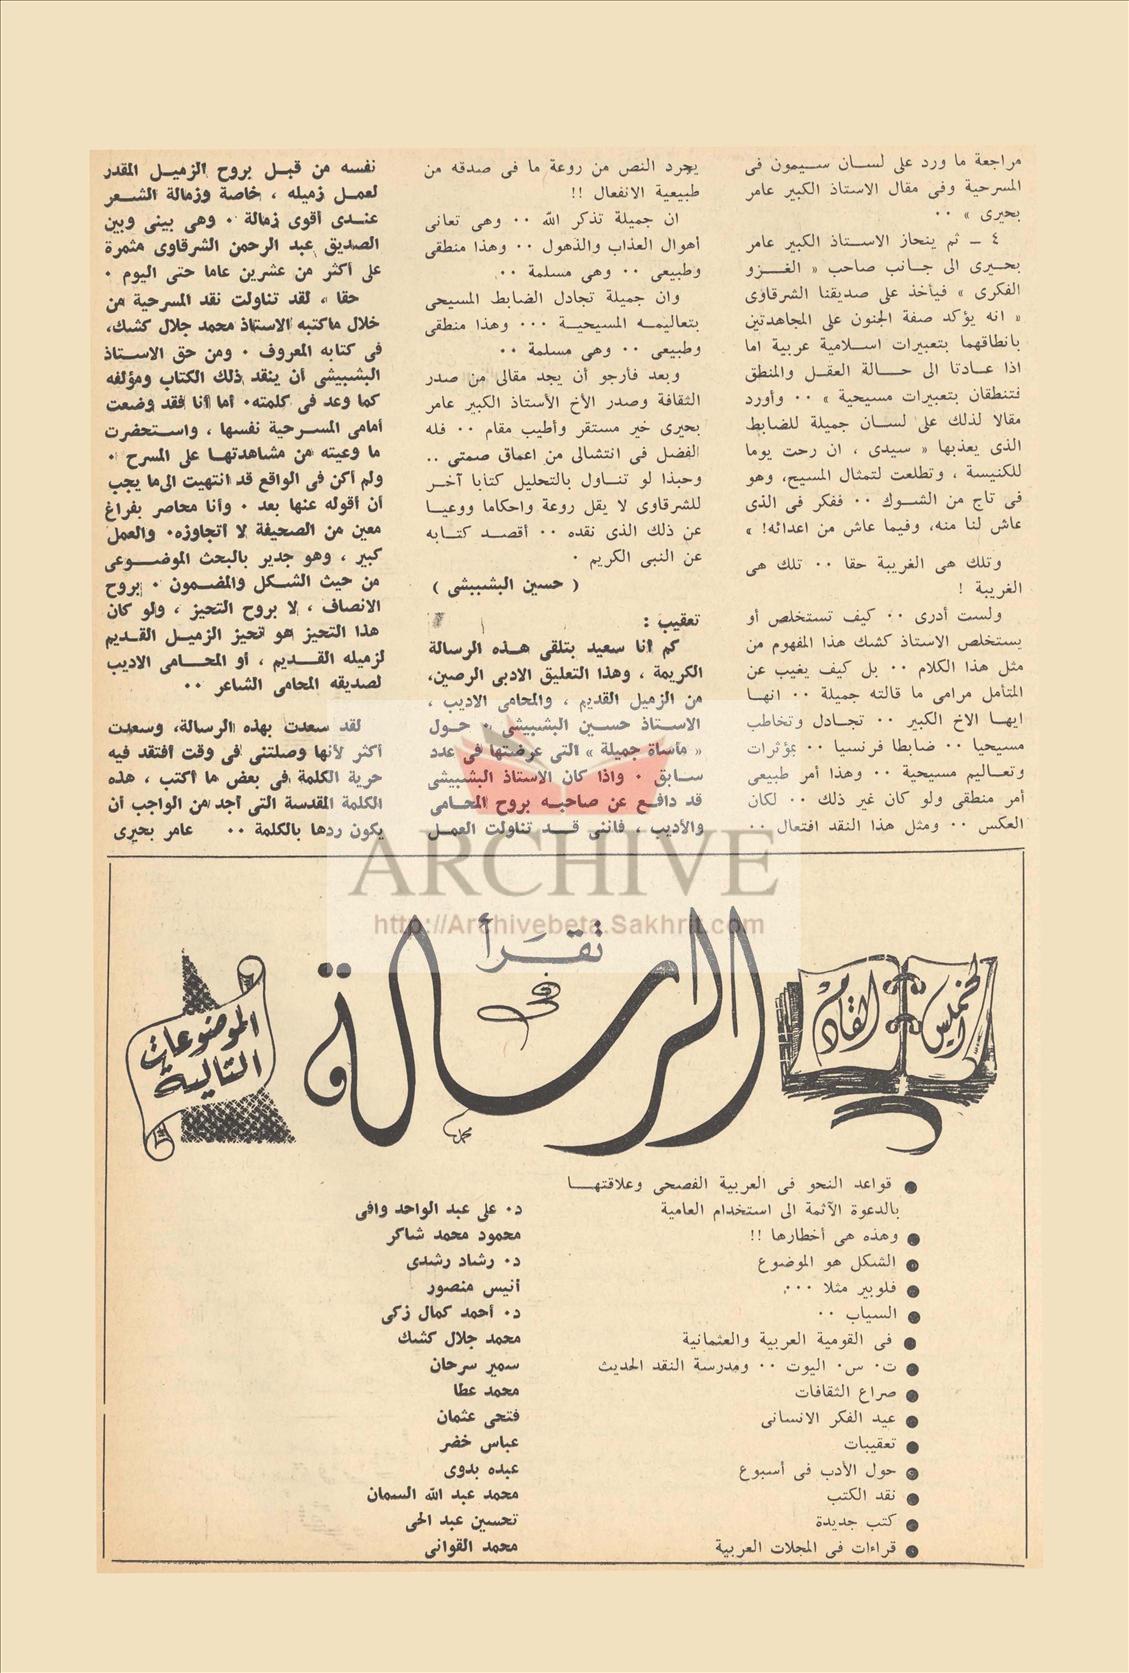 مراجعة ما ورد على لسان سيمون فى
المسرحية وفى مقال الاستاذ الكبير عامر
بحيرى » ٠٠
٤ ـ ثم ينحاز الاستاذ الكبير عامر
بحيرى الى جانب صاحب « الغزو
الفكرى » فيأخذ على صديقنا الشرقاوى
« انه يؤكد صفة الجنون على المجاهدتين
بانطاقهما بتعبيرات اسلامية عربية اما
اذا عادتا الى حالة العقل والمنطق
فتنطقان بتعبيرات مسيحية » ٠٠ وأورد
مقالا لذلك على لسان جميلة للضابط
الذى يعذبها « سيدى ، ان رحت يوما
للكنيسة ، وتطلعت لتمثال المسيح، وهو
فى تاج من الشوك ٠٠ ففكر فى الذى
عاش لنا منه، وفيما عاش من اعدائه! »
وتلك هى الغريبة حقا ٠٠ تلك هى
الغريبة !
ولست أدرى ٠٠ كيف تستخلص أو
يستخلص الاستاذ كشك هذا المفهوم من
مثل هذا الكلام ٠٠ بل كيف يغيب عن
المتأمل مرامى ما قالته جميلة ٠٠ انها
ايها الاخ الكبير ٠٠ تجادل وتخاطب
مسيحيا ٠٠ ضابطا فرنسيا ٠٠ بمؤثرات
وتعاليم مسيحية ٠٠ وهذا أمر طبيعى
أمر منطقى ولو كان غير ذلك ٠٠ لكان
العكس ٠٠ ومثل هذا النقد افتعال ٠٠
يجرد النص من روعة ما فى صدقه من
طبيعية الانفعال !!
ان جميلة تذكر الله ٠٠ وهى تعانى
أهوال العذاب والذهول ٠٠ وهذا منطقى
وطبيعى ٠٠ وهى مسلمة ٠٠
وان جميلة تجادل الضابط المسيحى
بتعاليمه المسيحية ٠٠٠ وهذا منطقى
وطبيعى ٠٠ وهى مسلمة ٠٠
وبعد فأرجو أن يجد مقالى من صدر
الثقافة وصدر الأخ الأستاذ الكبير عامر
بحيرى خير مستقر وأطيب مقام ٠٠ فله
الفضل فى انتشالى من اعماق صمتى ..
وحبذا لو تناول بالتحليل كتابا آخر
للشرقاوى لا يقل روعة واحكاما ووعيا
عن ذلك الذى نقده ٠٠ أقصد كتابه
عن النبى الكريم ٠
( حسين البشبيشى )
تعقيب :
كم أنا سعيد بتلقى هذه الرسالة
الكريمة ، وهذا التعليق الادبى الرصين،
من الزميل القديم ، والمحامى الاديب ،
الاستاذ حسين البشبيشى ٠ حول
« مأساة جميلة » التى عرضتها فى عدد
سابق ٠ واذا كان الاستاذ البشبيشى
قد دافع عن صاحبه بروح المحامى
والأديب ، فاننى قد تناولت العمل
نفسه من قبل بروح الزميل المقدر
لعمل زميله ، خاصة وزمالة الشعر
عندى أقوى زمالة ٠ وهى بينى وبين
الصديق عبد الرحمن الشرقاوى مثمرة
على أكثر من عشرين عاما حتى اليوم ٠
حقا ، لقد تناولت نقد المسرحية من
خلال ماكتبه الاستاذ محمد جلال كشك،
فى كتابه المعروف ٠ ومن حق الاستاذ
البشبيشى أن ينقد ذلك الكتاب ومؤلفه
كما وعد فى كلمته٠ أما أنا فقد وضعت
أمامى المسرحية نفسها ، واستحضرت
ما وعيته من مشاهدتها على المسرح ٠
ولم أكن فى الواقع قد انتهيت الى ما يجب
أن أقوله عنها بعد ٠ وأنا محاصر بفراغ
معين من الصحيفة لا أتجاوزه٠ والعمل
كبير ، وهو جدير بالبحث الموضوعى
من حيث الشكل والمضمون ٠ بروح
الانصاف ، لا بروح التحيز ، ولو كان
هذا التحيز هو تحيز الزميل القديم
لزميله القديم ، أو المحامى الاديب
لصديقه المحامى الشاعر ٠٠
لقد سعدت بهذه الرسالة، وسعدت
أكثر لأنها وصلتنى فى وقت أفتقد فيه
حرية الكلمة فى بعض ما أكتب ، هذه
الكلمة المقدسة التى أجد من الواجب أن
يكون ردها بالكلمة ٠٠ عامر بحيرى
ARCHIVE
http://Archivebeta.Sakhrit.com
الخميس القادم
تقرأ
فى
الرسالة
محمد
الموضوعات
التالية
● قواعد النحو فى العربية الفصحى وعلاقتها
بالدعوة الآثمة الى استخدام العامية د٠ على عبد الواحد وافى
● وهذه هى أخطارها !! محمود محمد شاكر
● الشكل هو الموضوع د٠ رشاد رشدى
● فلوبير مثلا ٠٠٠ أنيس منصور
● السياب ٠٠ د٠ أحمد كمال زكى
● فى القومية العربية والعثمانية محمد جلال كشك
● ت٠ س٠ اليوت ٠٠ ومدرسة النقد الحديث سمير سرحان
● صراع الثقافات محمد عطا
● عيد الفكر الانسانى فتحى عثمان
● تعقيبات عباس خضر
● حول الأدب فى أسبوع عبده بدوى
● نقد الكتب محمد عبد الله السمان
● كتب جديدة تحسين عبد الحى
● قراءات فى المجلات العربية محمد القوانى